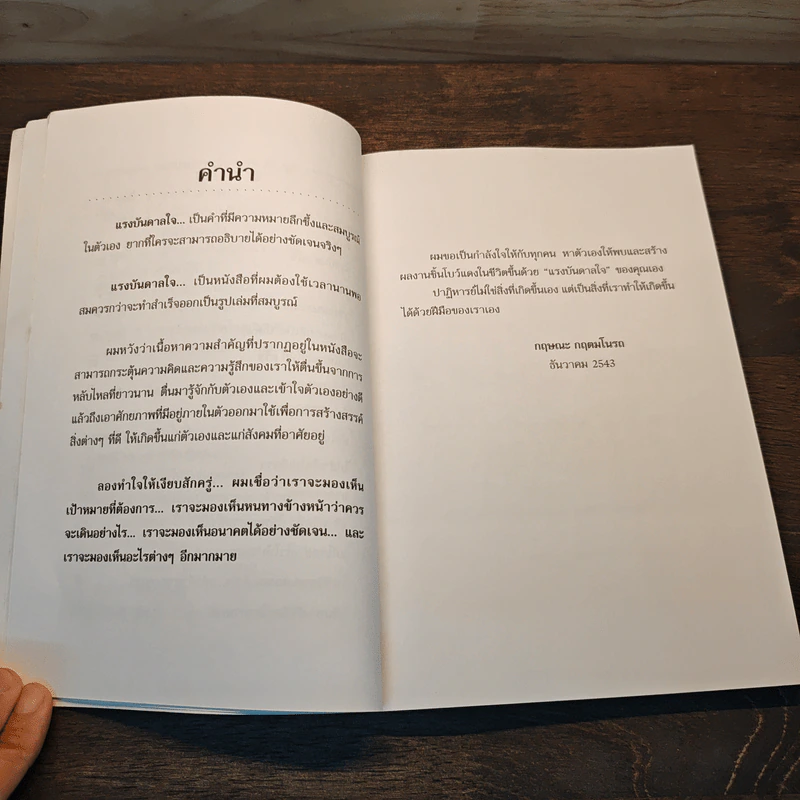 คำนำ
แรงบันดาลใจ... เป็นคำที่มีความหมายลึกซึ้งและสมบูรณ์
ในตัวเอง ยากที่ใครจะสามารถอธิบายได้อย่างชัดเจนจริงๆ
แรงบันดาลใจ... เป็นหนังสือที่ผมต้องใช้เวลานานพอ
สมควรกว่าจะทำสำเร็จออกเป็นรูปเล่มที่สมบูรณ์
ผมหวังว่าเนื้อหาความสำคัญที่ปรากฏอยู่ในหนังสือจะ
สามารถกระตุ้นความคิดและความรู้สึกของเราให้ตื่นขึ้นจากการ
หลับไหลที่ยาวนาน ตื่นมารู้จักกับตัวเองและเข้าใจตัวเองอย่างดี
แล้วถึงเอาศักยภาพที่มีอยู่ภายในตัวออกมาใช้เพื่อการสร้างสรรค์
สิ่งต่างๆ ที่ดี ให้เกิดขึ้นแก่ตัวเองและแก่สังคมที่อาศัยอยู่
ลองทำใจให้เงียบสักครู่... ผมเชื่อว่าเราจะมองเห็น
เป้าหมายที่ต้องการ... เราจะมองเห็นหนทางข้างหน้าว่าควร
จะเดินอย่างไร... เราจะมองเห็นอนาคตได้อย่างชัดเจน... และ
เราจะมองเห็นอะไรต่างๆ อีกมากมาย
ผมขอเป็นกำลังใจให้กับทุกคน หาตัวเองให้พบและสร้าง
ผลงานชิ้นโบว์แดงในชีวิตขึ้นด้วย "แรงบันดาลใจ" ของคุณเอง
ปาฏิหารย์ไม่ใช่สิ่งที่เกิดขึ้นเอง แต่เป็นสิ่งที่เราทำให้เกิดขึ้น
ได้ด้วยฝีมือของเราเอง
กฤษณะ กฤตมโนรถ
ธันวาคม 2543